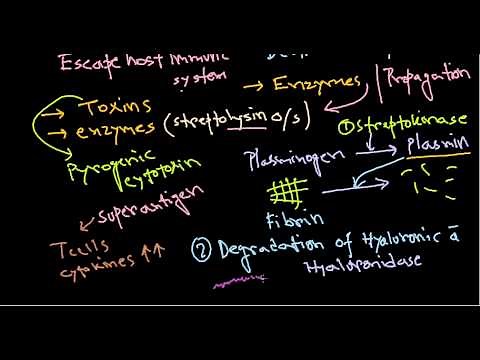 Escape host immune
system
→ Enzymes
Propagation
→ Toxins
→ enzymes (streptolysin o/s)
① streptokinase
Pyrogenic
cytotoxin
Plasminogen → Plasmin
Superantigen
Fibrin
T cells
cytokines ↑↑
② Degradation of Hyaluronic ā
Hyaluronidase